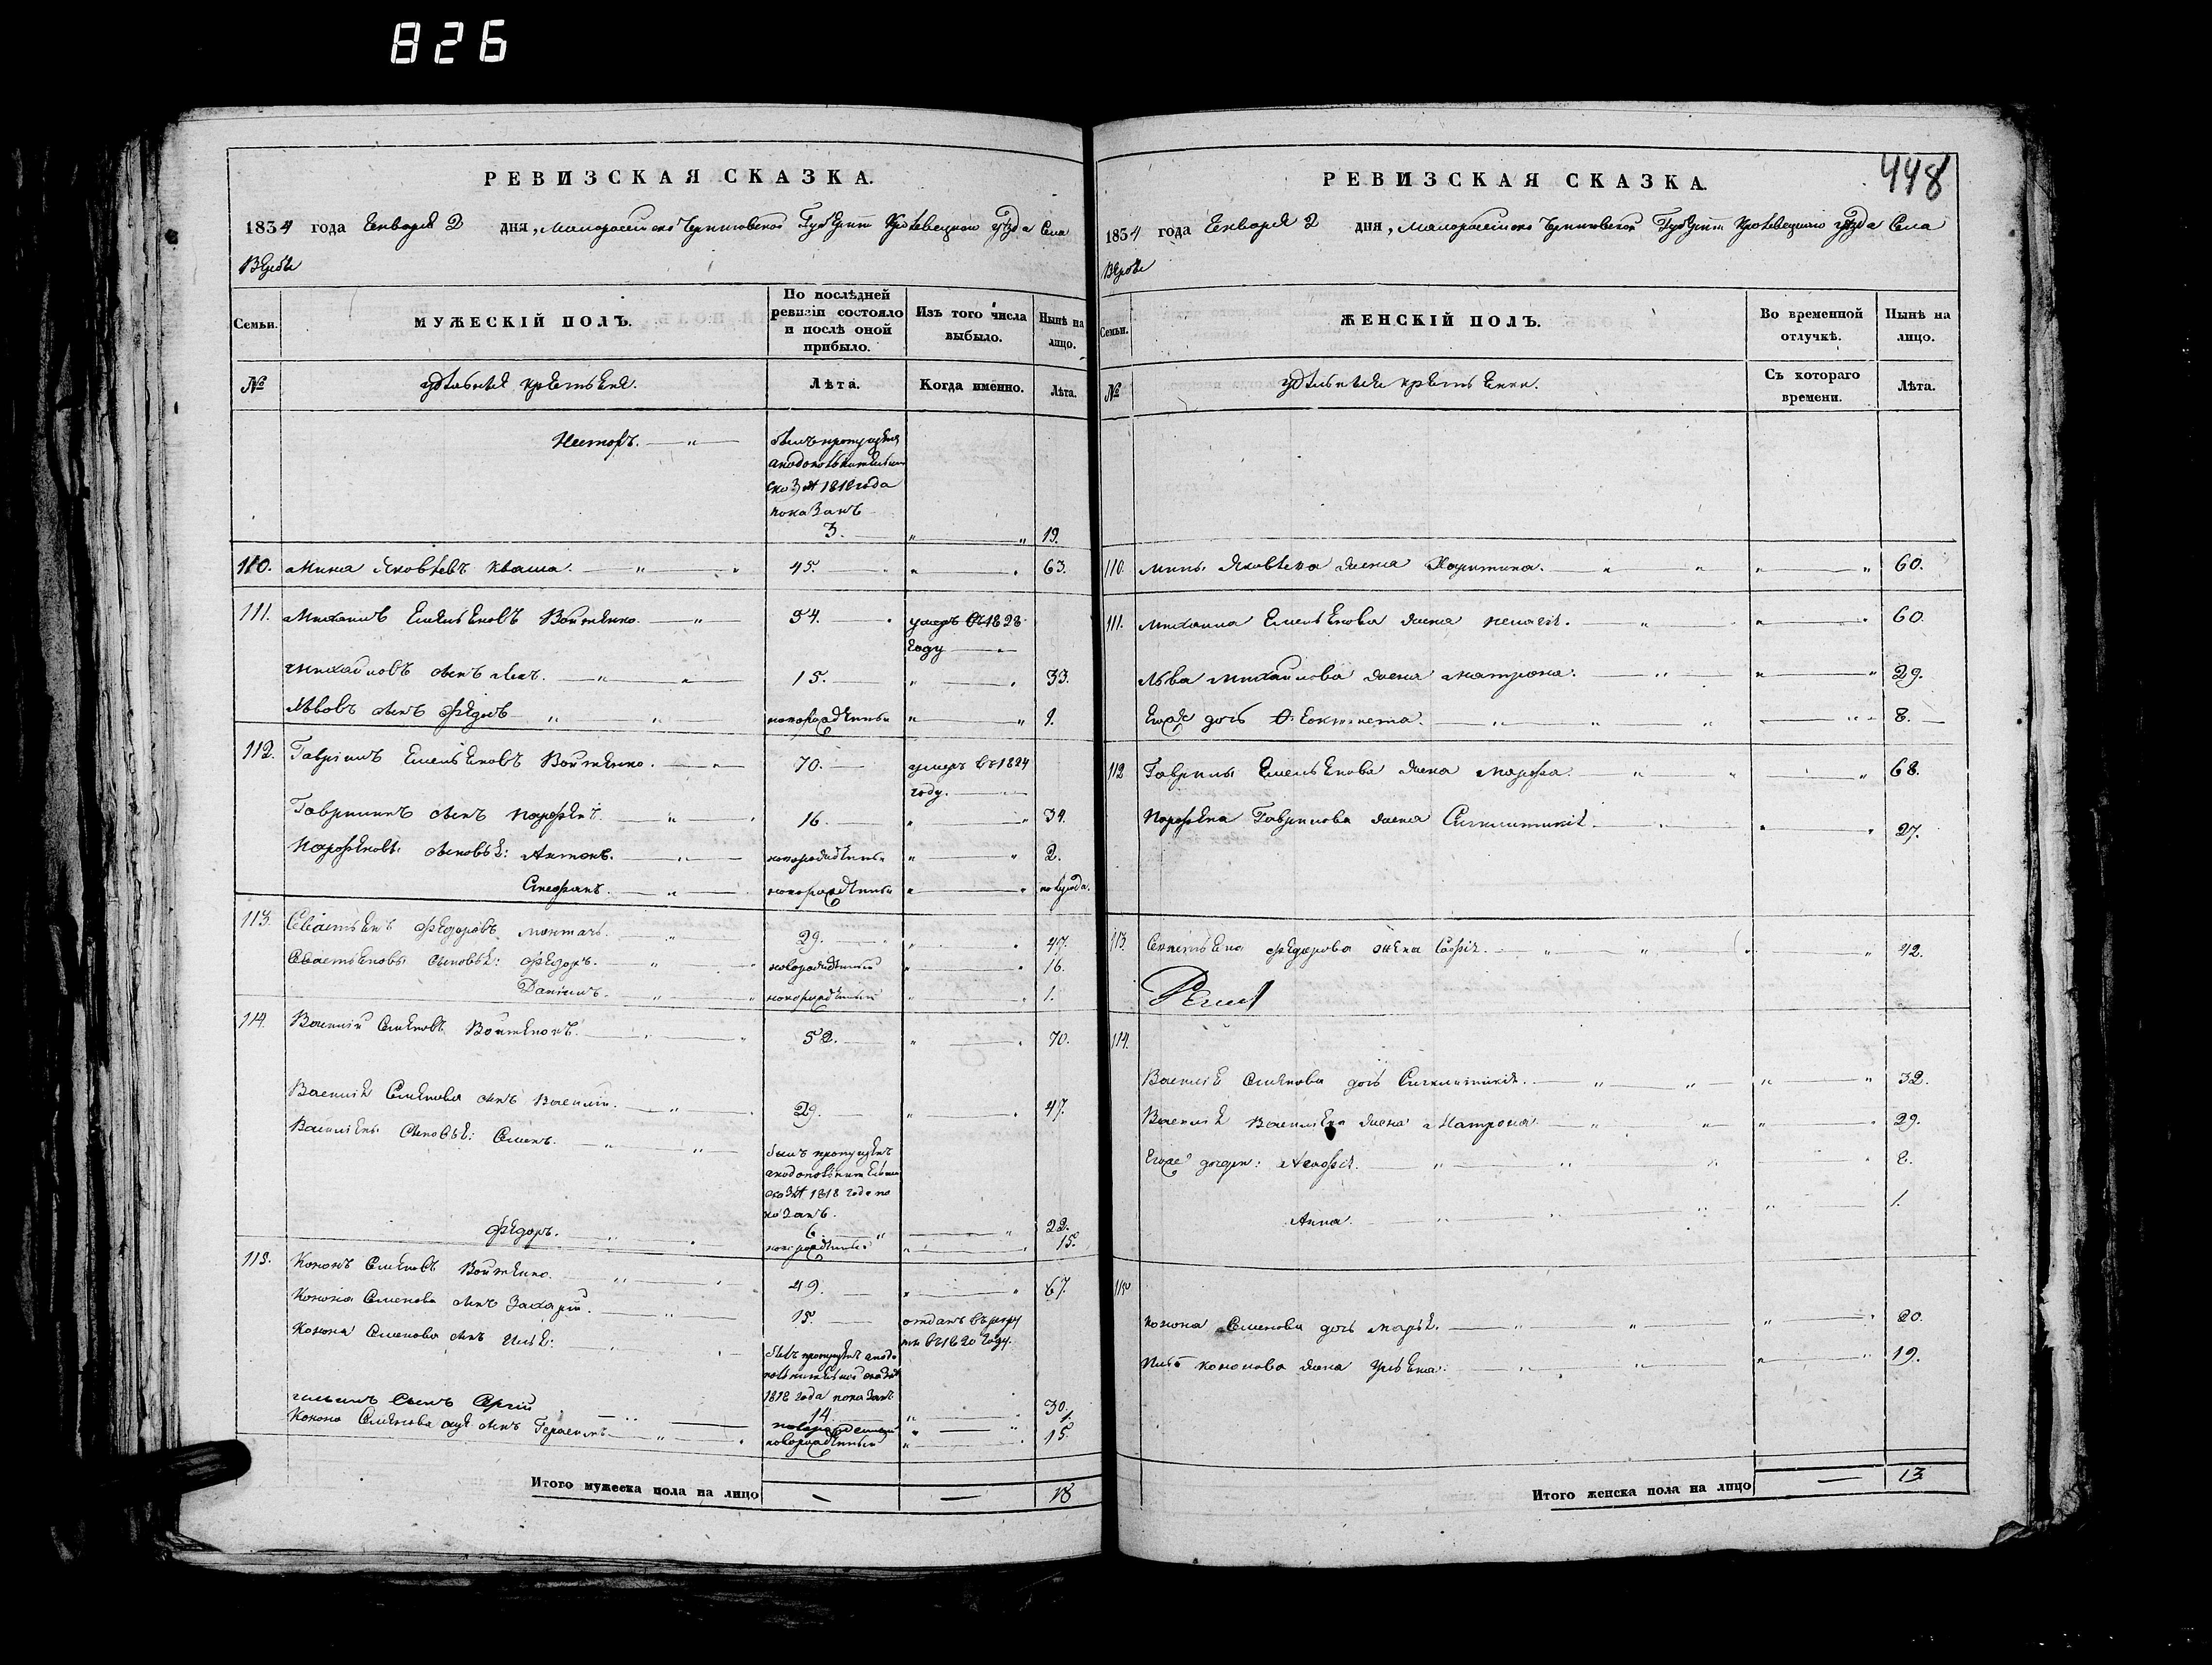 826
448
РЕВИЗСКАЯ СКАЗКА.
1834 года Генваря 2 дня, Малоросійско Черниговской Губерніи Кролевецкого уезда Села
Вербы
Семьи. МУЖЕСКІЙ ПОЛЪ. По послѣдней ревизіи состояло и послѣ оной прибыло. Изъ того числа выбыло. Нынѣ на лицо.
№ Лѣта. Когда именно. Лѣта.
Несторъ.
1818 года
показанъ
3. 19.
110. Мина Яковлевъ Кваша. 45. 63.
111. Михаилъ Емельяновъ Войтенко. 54. умеръ въ 1828
году
Михайловъ сынъ Левъ. 15. 33.
Львовъ сынъ Федоръ новорожденный 9.
112. Гаврилъ Емельяновъ Войтенко. 70. умеръ въ 1824
году.
Гавриловъ сынъ Парфенъ. 16. 34.
Парфеновы сыновья: Антонъ. новорожденный 2.
Стефанъ. новорожденный полгода.
113. Севастьянъ Федоровъ 29. 47.
Севастьяновы сыновья: Федоръ. новорожденный 16.
Даніилъ. новорожденный 1.
114. Василій Семеновъ Войтенокъ. 52. 70.
Василія Семенова сынъ Василій. 29. 47.
Сыновья: Семенъ. былъ пропущенъ
1818 года по
казанъ.
6 22.
Федоръ. новорожденный 15.
115. Кононъ Семеновъ Войтенко. 49. 67.
Конона Семенова сынъ Захарій. 15. отданъ въ рекру
ты въ 1820 году.
Конона Семенова сынъ Илья:
былъ пропущенъ а подо
1818 года показанъ
14. 30.
Ильинъ сынъ Сергій новорожденный 1.
Конона Семенова сынъ Герасимъ новорожденный 15.
Итого мужеска пола на лицо — — 18
РЕВИЗСКАЯ СКАЗКА.
1834 года Генваря 2 дня, Малоросійско Черниговской Губерніи Кролевецкого уезда Села
Вербы
Семьи. ЖЕНСКІЙ ПОЛЪ. Во временной отлучкѣ. Нынѣ на лицо.
№ Съ котораго времени. Лѣта.
110. Мины Яковлева жена Харитина. 60.
111. Михаила Емельянова жена 60.
Льва Михайлова жена Матрона. 29.
Егоже дочь Феоктиста. 8.
112 Гаврилы Емельянова жена Марфа. 68.
Парфена Гаврилова жена Сигклитикія 27.
113. Севастьяна Федорова жена Софія. 42.
114.
Василія Семенова дочь Сигклитикія. 32.
Василія Васильева жена Матрона 29.
Егоже дочери: 8.
Анна. 1.
115
Конона Семенова дочь Марья. 20.
Ильи Кононова жена Ульяна: 19.
Итого женска пола на лицо — 13